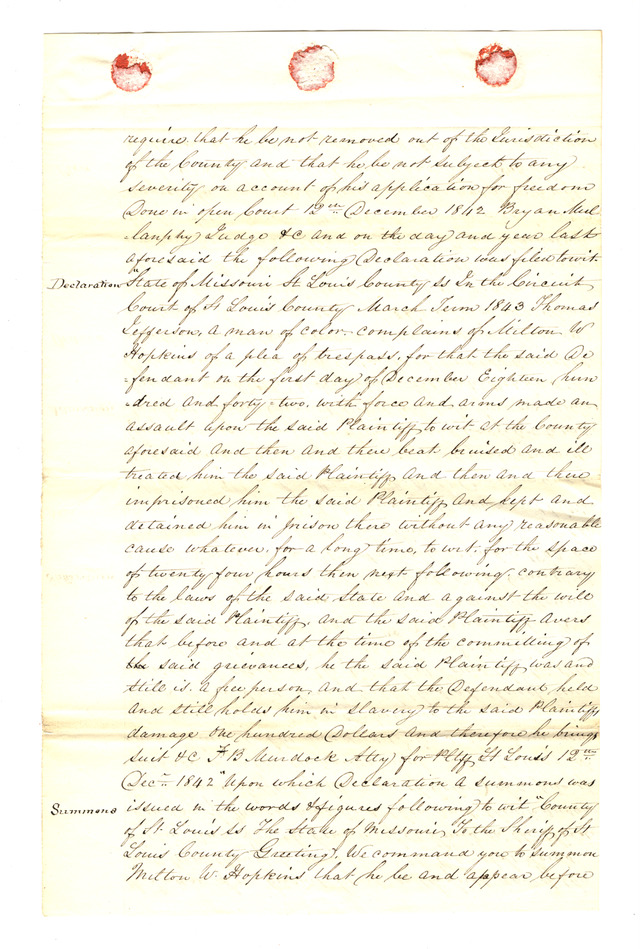 require that he be not removed out of the Jurisdiction
of the County and that he be not subject to any
severity on account of his application for freedom
Done in open Court 12th December 1842 Bryan Mul
-lanphy Judge &c and on the day and year last
aforesaid the following Declaration was filed to wit
Declaration "State of Missouri St Louis County Ss In the Circuit
Court of St Louis County March Term 1843 Thomas
Jefferson, a man of color complains of Milton W
Hopkins of a plea of trespass, for that the said De
-fendant on the first day of December Eighteen hun
-dred and forty-two, with force and arms made an
assault upon the said Plaintiff to wit at the County
aforesaid and then and there beat bruised and ill
treated him the said Plaintiff and then and there
imprisoned him the said Plaintiff and kept and
detained him in prison there without any reasonable
cause whatever, for a long time, to wit; for the space
of twenty four hours then next following, contrary
to the laws of the said State and against the will
of the said Plaintiff, and the said Plaintiff avers
that before and at the time of the committing of
the said grievances, he the said Plaintiff was and
still is, a free person, and that the Defendant held
and still holds him in slavery to the said Plaintiffs
damage One hundred Dollars and therefore he brings
suit &c F B Murdock Atty for Plff St Louis 12th
Decr 1842" Upon which Declaration a summons was
Summons issued in the words & figures following to wit "County
of St Louis Ss The State of Missouri To the Sheriff of St
Louis County Greeting, We command you to summon
Milton W. Hopkins that he be and appear before